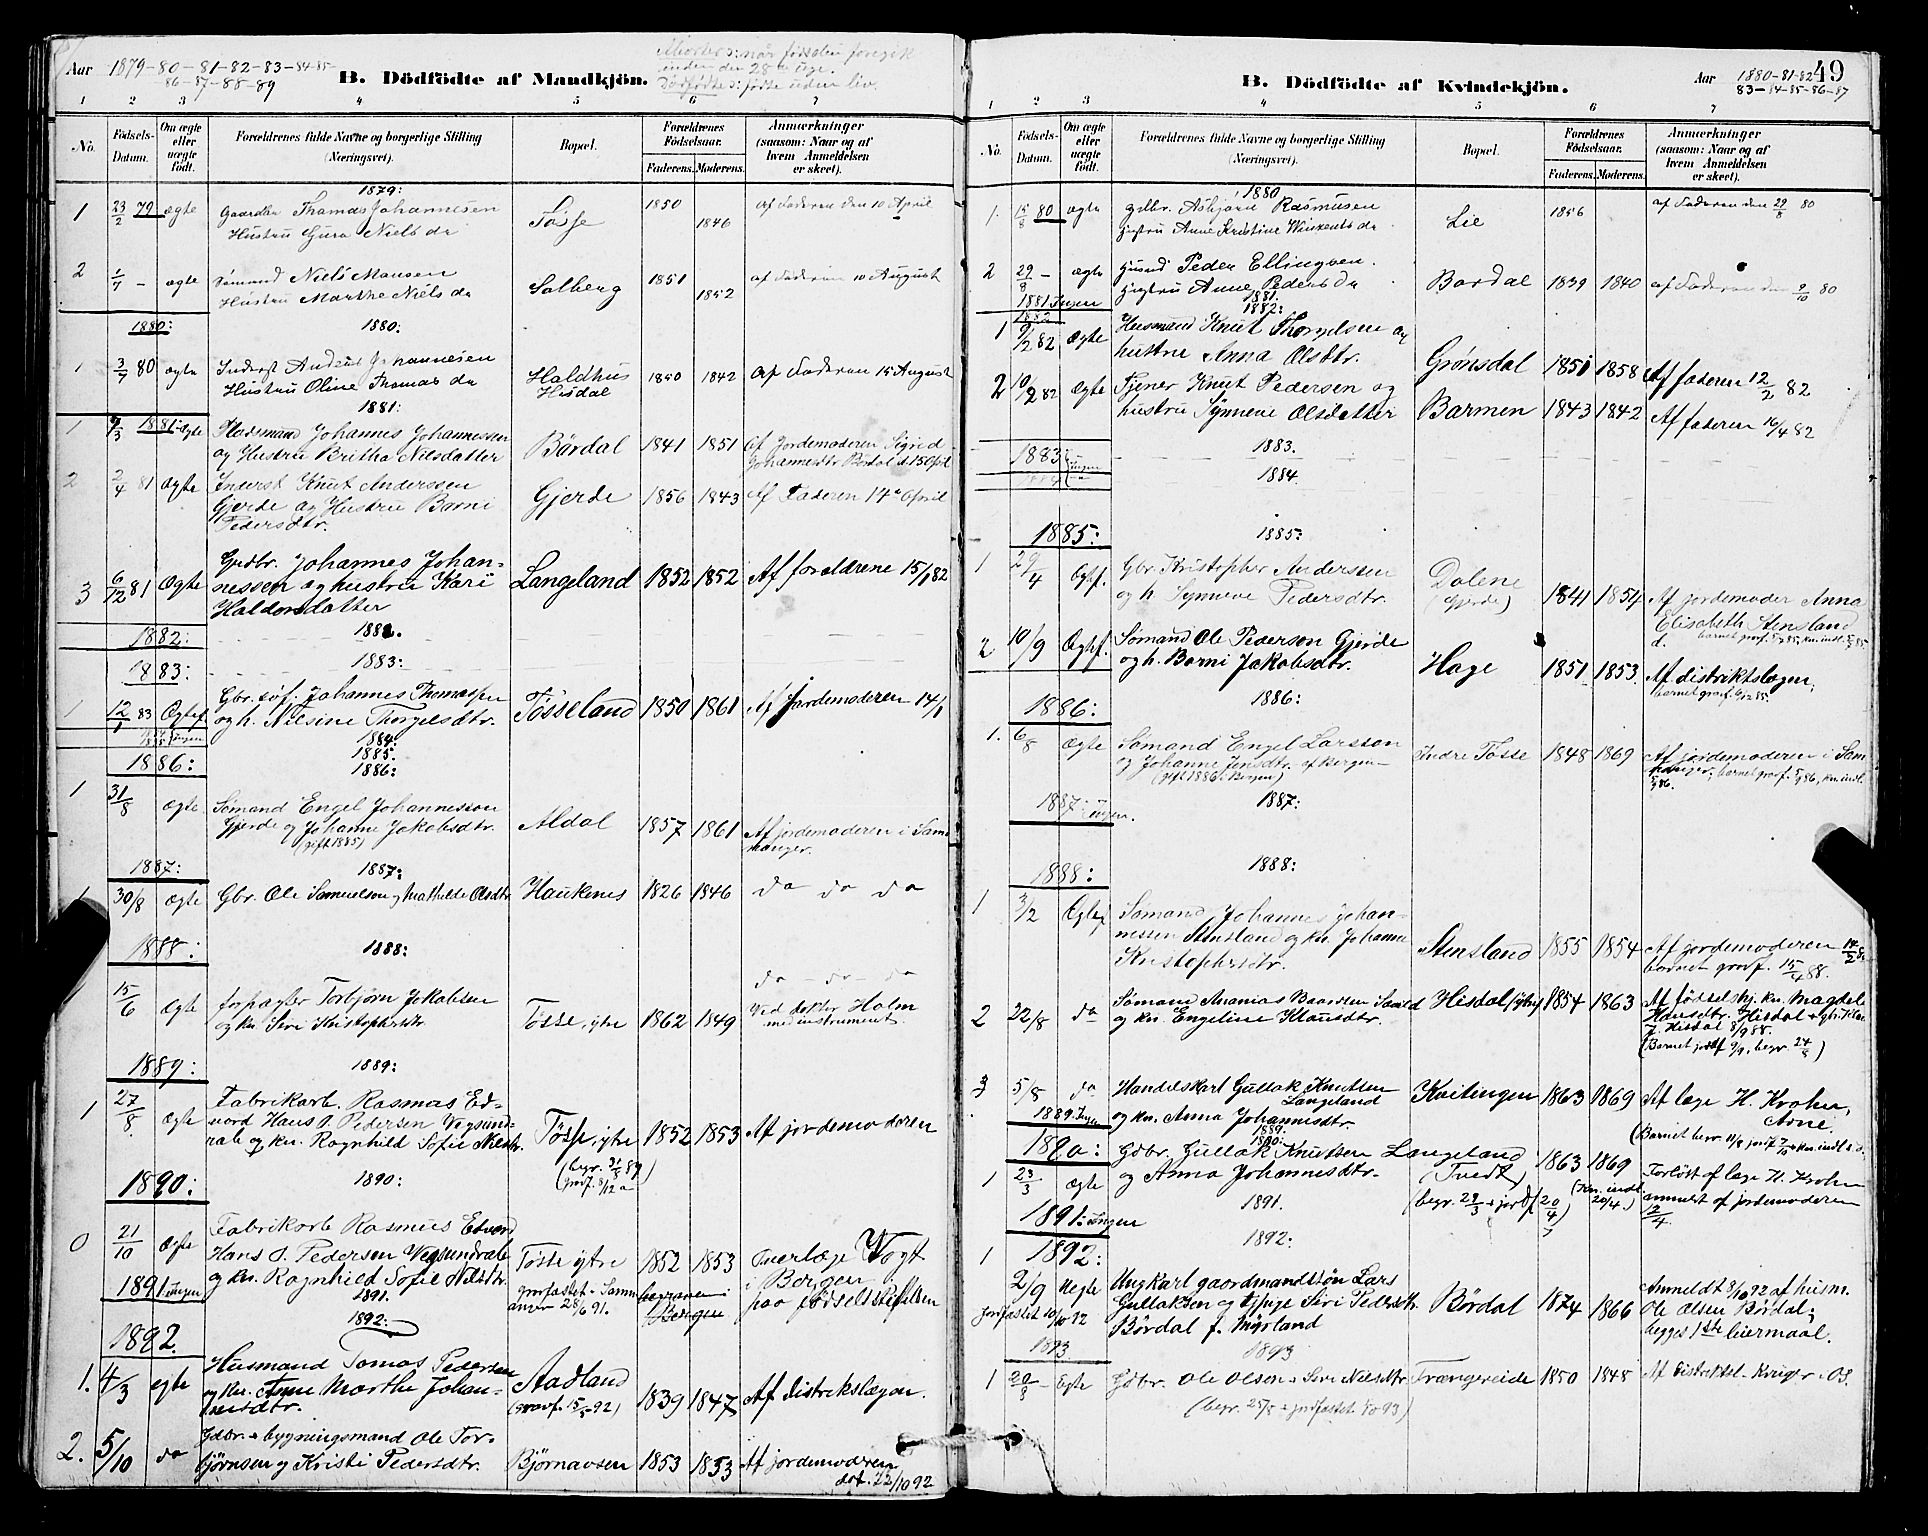 Aar 1879-80-81-82-83-84-85-
86-87-88-89
B. Dödfödte af Mandkjön.
naar fødselen foregik
inden den 28de Uge.
Dødfødte: fødte uden liv.
1 2 3 4 5 6 7
No.
Födsels-Datum.
Om ægte eller uægte födt.
Forældrenes fulde Navne og borgerlige Stilling (Næringsvei).
Bopæl.
Forældrenes Födselsaar.
Faderens. Moderens.
Anmærkninger (saasom: Naar og af hvem Anmeldelsen er skeet).
1879:
1 23/2 79 ægte Thomas Johannesen Tøsse 1850 af Faderen den 10 April
Hustru Gura Niels dr 1846
2 1/7 - ægte Sømand Niels Monsen Solberg 1851 af Faderen 10 August
Hustru Marthe Niels dr 1852
1880: 1880:
1 3/7 80 ægte Inderst Anders Johannesen Haldhus 1850 1842 af Faderen 15 August
Hustru Oline Thomas dr Hisdal
1881:
1 9/3 1881 Ægte Pladsmand Johannes Johannessen Bördal 1841 1851 Af Jordemoderen Sigrid
og Hustru Britha Nilsdatter Johannesdtr Bördal d. 15 April
2 2/4 81 Ægte Inderst Knut Anderssen Gjerde 1856 1843 Af Faderen 14de April
Gjerde og Hustru Barni
Pedersdtr.
3 6/12 81 Ægte Grdbr. Johannes Johan-
nessen og hustru Kari Langeland 1852 1852 Af forældrene 15/1 82
Haldorsdatter
1882: 1882.
1883: 1883:
1 12/1 83 Ægtef. Gbr. søf. Johannes Thomassen
og h. Nilsine Thorgelsdtr. Tösseland 1850 1861 Af Jordemoderen 14/1
1884:
1885.
1886: 1886:
1 31/8 ægte Sømand Engel Johannesson
Gjerde og Johanne Jakobsdtr. Aldal 1857 1861 Af jordemoderen i Sam-
(gift 1885) nanger.
1887: 1887:
1 30/8 ægte Gbr. Ole Samuelson og Mathilde Olsdtr. Haukenes 1826 1846 do do do
1888: 1888:
do - do - do
15/6 ægte forpagter Torbjørn Jakobsen
og kn. Siri Kristophersdtr. Tösse, ytre 1862 1849 Ved doktor Holm
med instrument.
1889: 1889:
1 27/8 ægte Fabrikarb. Rasmus Ed-
vard Hans O. Pedersen Vegsund-
rabe og kn. Ragnhild Sofie Nilsdtr. Tösse, ytre 1852 1853 Af jordemoderen
(begr. 31/8 89)
1890: 1890:
0 21/10 ægte Fabrikarb. Rasmus Edvard
Hans O. Pedersen Vegsundrabe Tösse ytre 1852 1853 Overlæge Vogt
og kn. Ragnhild Sofie Nilsdtr. i Bergen
1891 ingen jordfæstet i Samn- begraven i paa fødselsstiftelsen
1891. anger 28/6 91. Bergen
1892. 1892:
1. 4/3 egte Husmand Tomas Pedersen
og kn. Anne Marthe Johan- Aadland 1839 1847 Af distrikslægen.
nesdtr.
2. 5/10 do Gdbr. & bygningsmand Ole Tor-
bjørnsen og Kristi Pedersdtr. Bjørnaasen 1853 1853 Af jordemoderen
dat. 22/10 92
49
B. Dödfödte af Kvindekjön.
Aar 1880-81-82
83-84-85-86-87
1 2 3 4 5 6 7
No.
Födsels-Datum.
Om ægte eller uægte födt.
Forældrenes fulde Navne og borgerlige Stilling (Næringsvei).
Bopæl.
Forældrenes Födselsaar.
Faderens. Moderens.
Anmærkninger (saasom: Naar og af hvem Anmeldelsen er skeet).
1880
1. 15/8 80 ægte Gdbr. Asbjørn Rasmusen Lie 1856 af Faderen den 29/8 80
Hustru Anne Kristine Winsents dr
2 29/8 - ægte Husmd Peder Ellingsen Bordal 1839 1840 af Faderen den 9/10 80
Hustru Anne Peders dr
1881 Ingen 1881.
1882 1882:
1 9/2 82 Ægte Husmand Knut Thorgelsen og
hustru Anna Olsdtr. Grönsdal 1851 1858 Af faderen 12/2 82
2 10/2 82 Ægte Tjener Knut Pedersen og
hustru Synneve Olsdatter Barmen 1843 1842 Af faderen 16/4 82
1883 ingen 1883.
1884 1884.
1885: 1885:
1 29/4 Ægtf. Gbr. Kristopher Anderssen Dalene
og h. Synneve Pedersdtr. (Gjerde) 1841 1854 Af jordemoder Anna
Elisabeth Stensland
2 10/9 Ægtf. Sømand Ole Pederson Gjerde
og h. Barni Jakobsdtr. Hage 1851 1853. Af distriktslægen,
barnet graf. 6/12 85.
1886: 1886:
1. 6/8 Ægte Sømand Engel Larsson Indre Tösse 1848 1869 Af jordemoderen i Sam-
og Johanne Jensdtr. af Bergen
(gift 1886 i Bergen)
1887: ingen. 1887:
1888: 1888:
1 3/2 Ægtef Sømand Johannes Johan-
nessen Stensland og kn. Johanne Stensland 1855 1854 Af jordemoderen 14/2 88
Kristophersdtr. barnet gravf. 15/4 88.
2 22/8 do Sømand Ananias Baardsen Hisdal (ytre) 1854 1863 Af fødselshj. kn. Magdele
og kn. Engeline Klausdtr. Hansdtr. Hisdal
Hisdal 8/9 88.
3 5/8 do Handelskarl Gullak Knutsen Kvitingen 1863 1869 Af læge H. Krohn,
Langeland
1889 Ingen og kn. Anna Johannesdtr. Arne.
1889.
1890: 1890:
1 23/3 ægte Gdbr. Gullak Knutsen Langeland 1863 1869 Forløst af læge H. Krohn
og Anna Johannesdtr. (Tvedt) anmeldt af jordemoderen
(begr. 29/3 & jordf. 20/4) (Kn. indl. 20/4) 12/4.
1891: ingen 1891.
1892: 1892:
1 2/9 Uegte Ungkarl gaardmandssøn Lars Anmeldt 8/10 92 af husm.
jordfæstet 10/10 92 Gullaksen og pige Siri Pedersdtr. Bördal 1874 1866 Ole Olsen Bördal;
Bördal f. Myrland begges 1ste leiermaal.
1893 1893
1 20/5 - Egte Gdbr. Ole Olsen & Siri Nilsdtr Trængereide 1850 1848 Af Distriktsl. i Os.
(begr. 25/5 & jordfæstet 93)